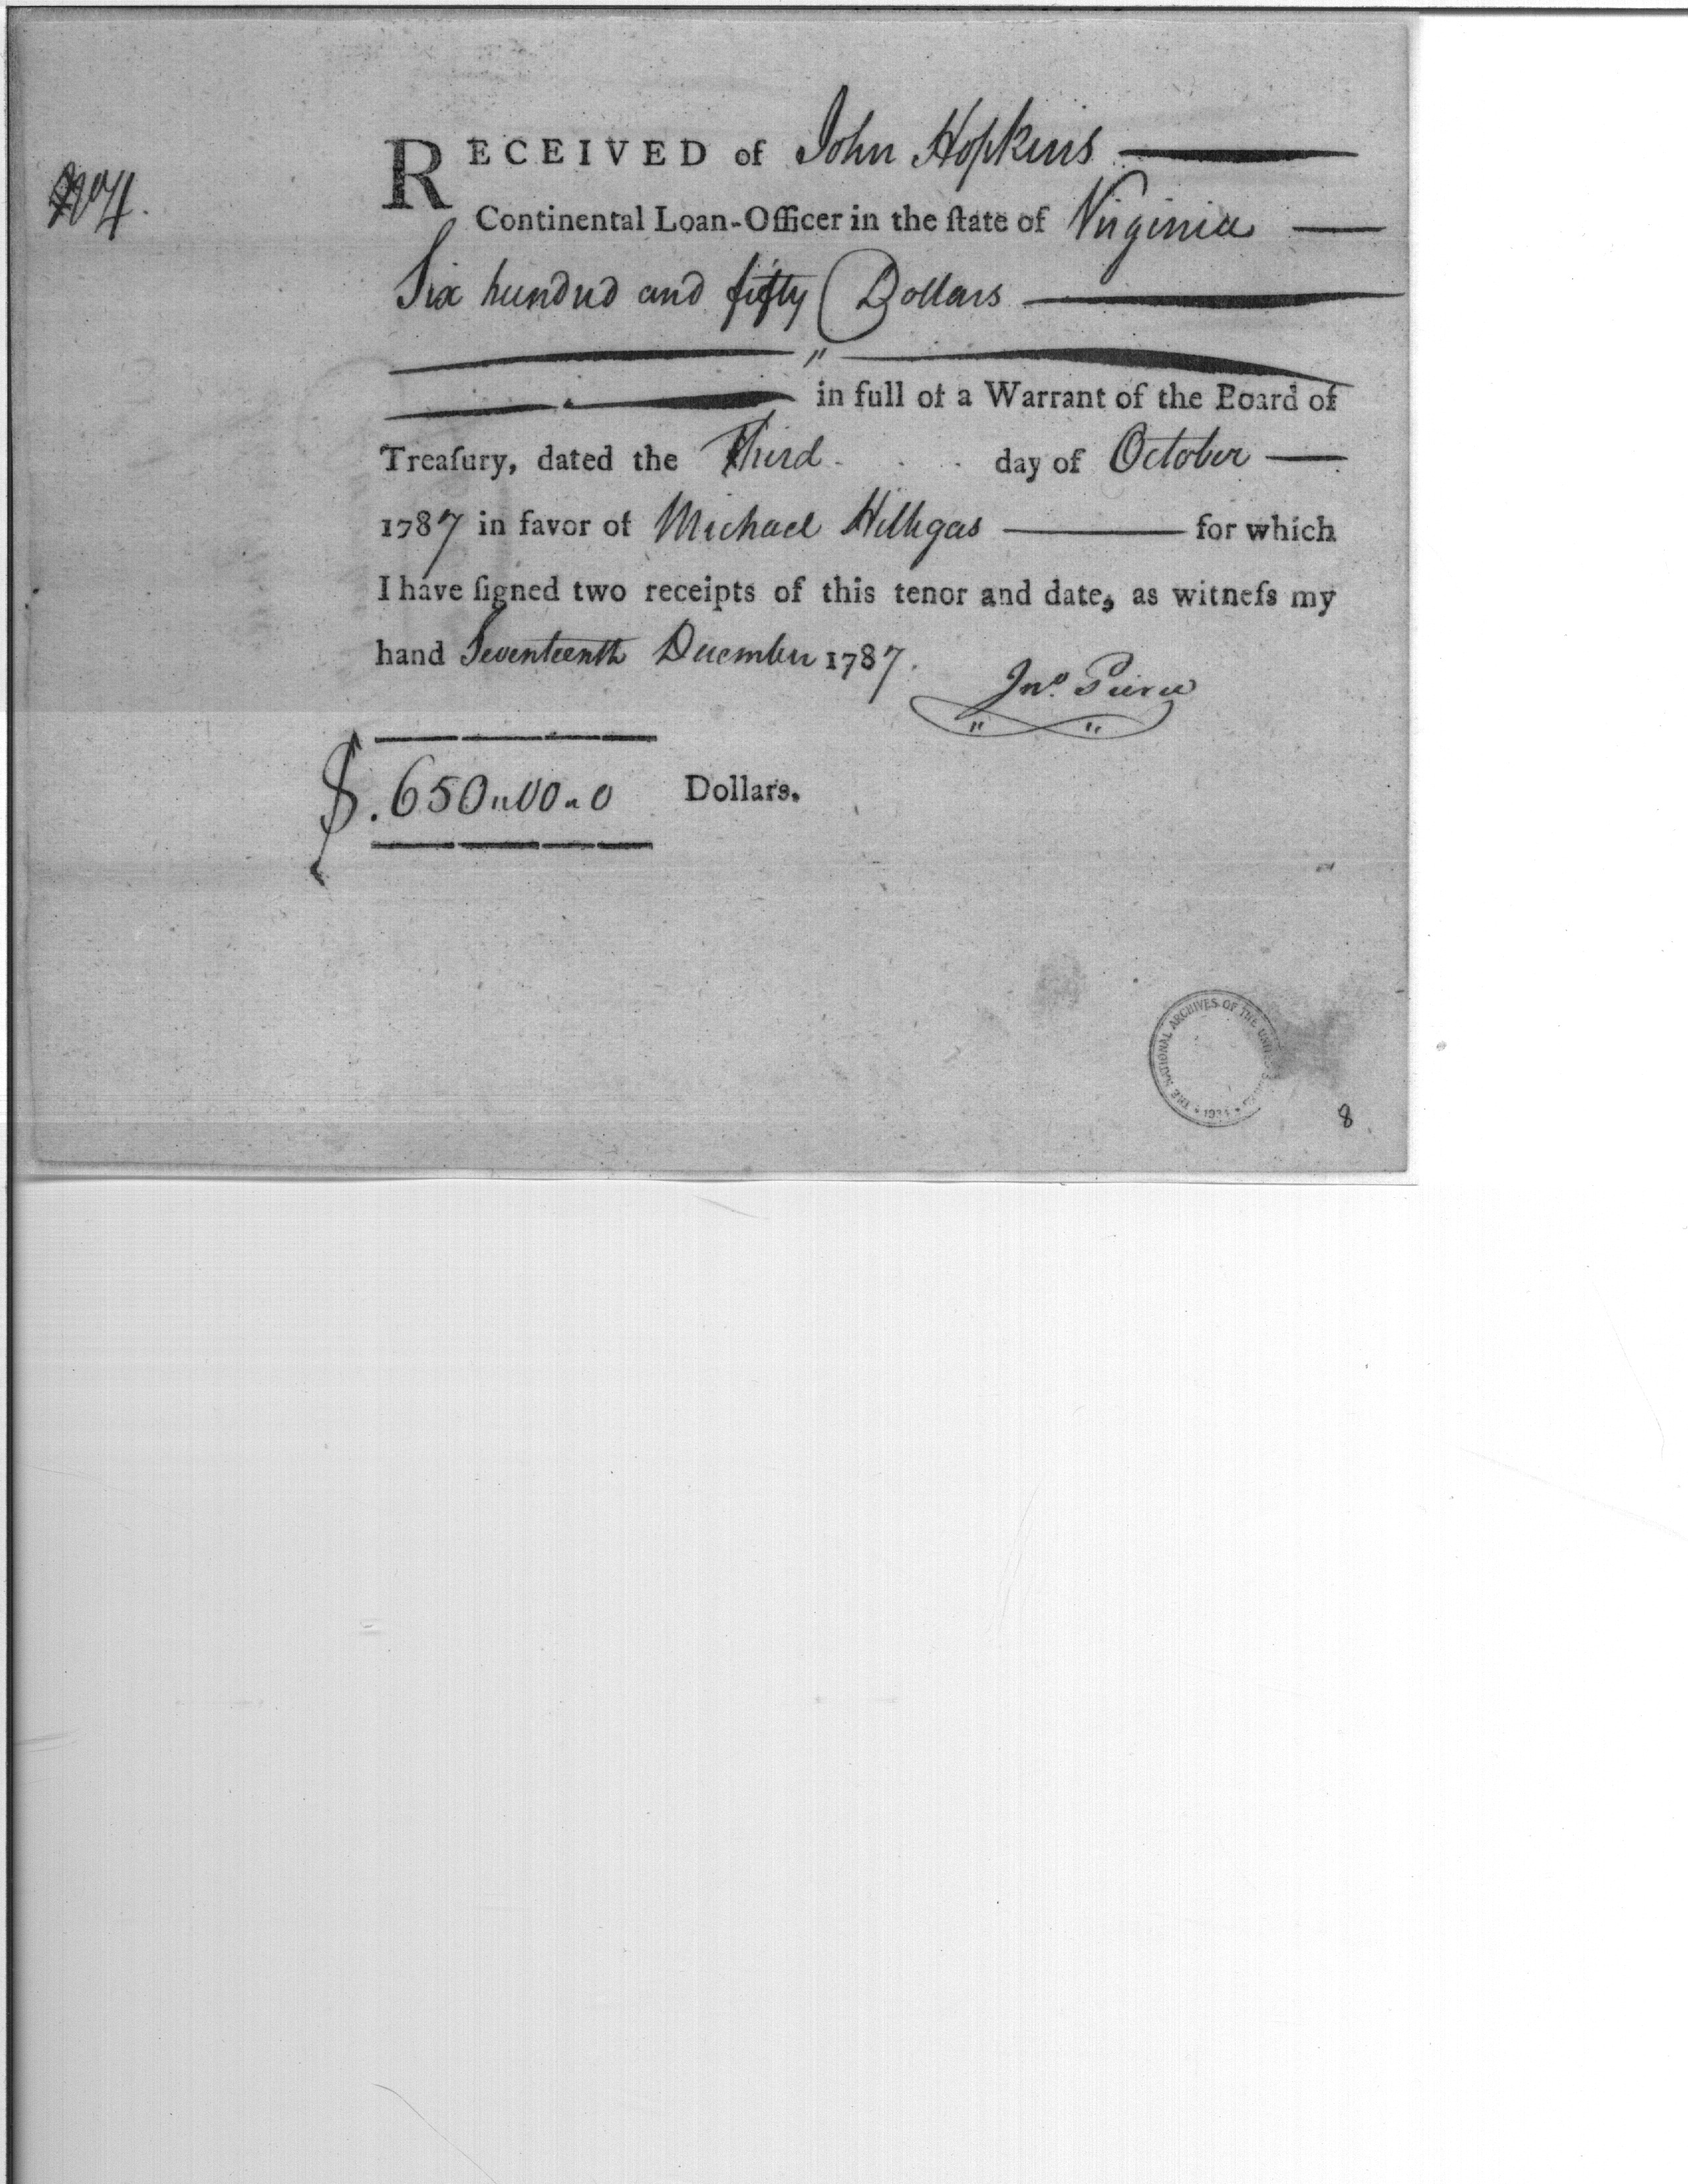 No 4.
RECEIVED of John Hopkins
Continental Loan-Officer in the ſtate of Virginia
Six hundred and fifty Dollars
in full of a Warrant of the Board of
Treaſury, dated the Third day of October
1787 in favor of Michael Hillegas for which
I have ſigned two receipts of this tenor and date, as witneſs my
hand Seventeenth December 1787.
Jno. Pierce
$.650"00"0 Dollars.
THE NATIONAL ARCHIVES OF THE UNITED
8